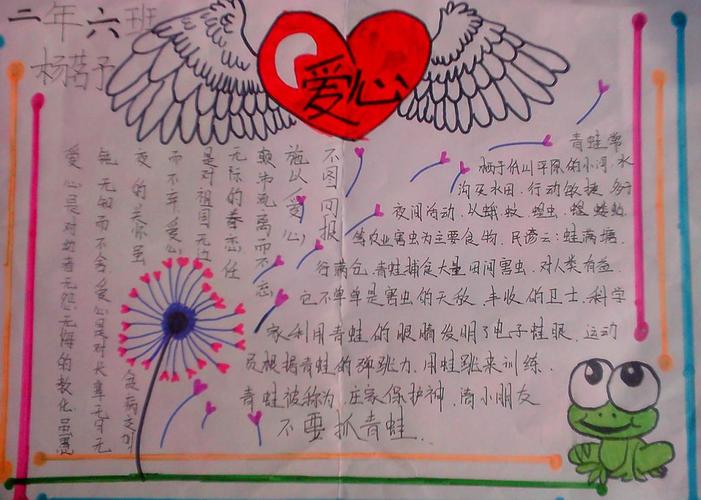 二年六班
杨茗予
爱心
爱心是对幼者无怨无悔的教化虽愚
钝无知而不舍爱心是对长辈无穷无
夜的关怀虽贫病交加
而不弃爱心
是对祖国无边
无际的眷恋任
颠沛流离而不忘
施以爱心
不图回报
青蛙常
栖于低山平原的小河.水
沟及水田.行动敏捷.多
夜间活动.以蛾.蚊.蝗.蝼蛄
等农业害虫为主要食物.民谚云:蛙满塘.
谷满仓.青蛙捕食大量田间害虫.对人类有益.
它不单单是害虫的天敌.丰收的卫士.科学
家利用青蛙的眼睛发明了电子蛙眼.运动
员根据青蛙的弹跳力.用蛙跳来训练.
青蛙被称为.庄家保护神.请小朋友
不要抓青蛙.